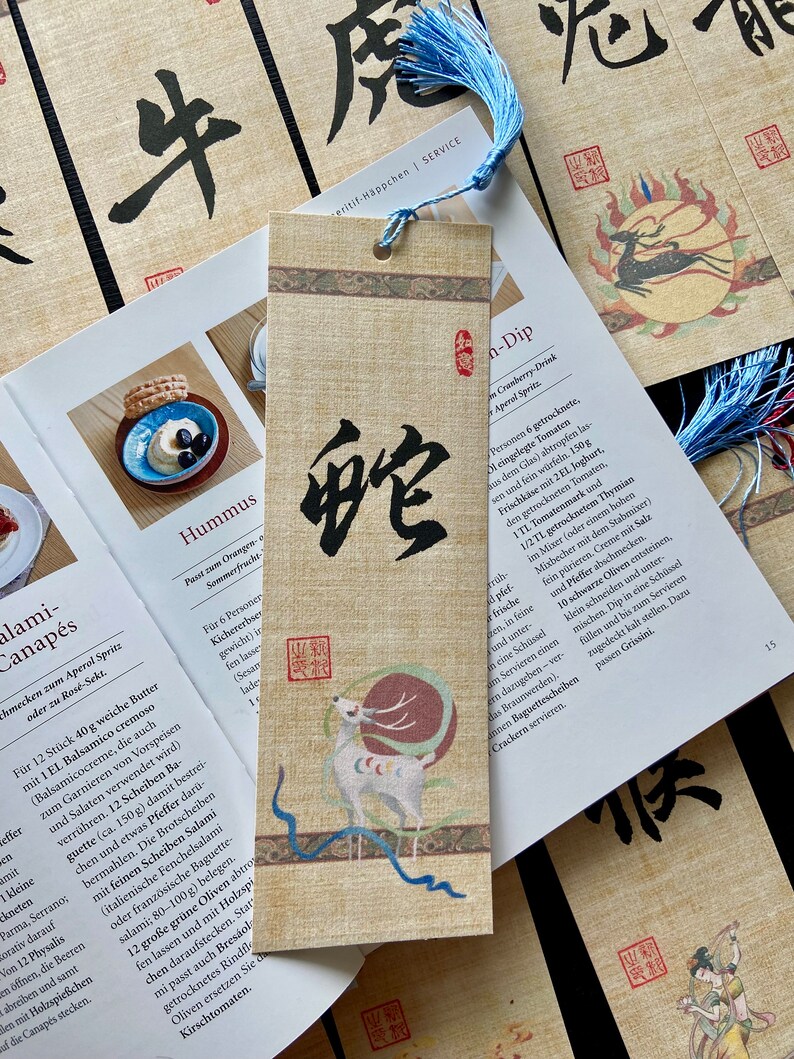 牛
虎
兔
龍
Aperitif-Häppchen | SERVICE
如意
蛇
Hummus
Passt zum Orangen- o
Sommerfrucht-
Für 6 Personen
Kichererbsen
gewicht) in
fen lasse
(Sesam
lade
n-Dip
m Cranberry-Drink
er Aperol Spritz.
Personen 6 getrocknete,
Öl eingelegte Tomaten
aus dem Glas) abtropfen las-
sen und fein würfeln. 150 g
Frischkäse mit 2 EL Joghurt,
den getrockneten Tomaten,
1 TL Tomatenmark und
1/2 TL getrocknetem Thymian
im Mixer (oder einem hohen
Mixbecher mit dem Stabmixer)
fein pürieren. Creme mit Salz
und Pfeffer abschmecken.
10 schwarze Oliven entsteinen,
klein schneiden und unter-
mischen. Dip in eine Schüssel
füllen und bis zum Servieren
zugedeckt kalt stellen. Dazu
passen Grissini.
rrüh-
d pfef-
frische
, in feine
und unter-
eine Schüssel
um Servieren einen
n dazugeben – ver-
das Braunwerden).
innen Baguettescheiben
Crackern servieren.
15
alami-
Canapés
chmecken zum Aperol Spritz
oder zu Rosé-Sekt.
Für 12 Stück 40 g weiche Butter
mit 1 EL Balsamico cremoso
(Balsamicocreme, die auch
zum Garnieren von Vorspeisen
und Salaten verwendet wird)
verrühren. 12 Scheiben Ba-
guette (ca. 150 g) damit bestrei-
chen und etwas Pfeffer darü-
bermahlen. Die Brotscheiben
mit feinen Scheiben Salami
(italienische Fenchelsalami
oder französische Baguette-
salami; 80–100 g) belegen.
12 große grüne Oliven abtro
fen lassen und mit Holzspieß
chen daraufstecken. Stat
mi passt auch Bresaol
getrocknetes Rindfle
Oliven ersetzen Sie d
Kirschtomaten.
feffer
ben
1 kleine
ckneten
Parma, Serrano;
orativ darauf
Von 12 Physalis
en öffnen, die Beeren
abreiben und samt
len mit Holzspießchen
auf die Canapés stecken.
猴